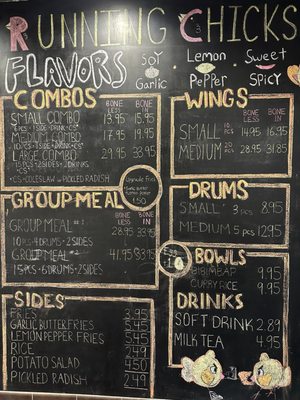 RUNNING CHICKS
FLAVORS
SOY
GARLIC
LEMON
PEPPER
SWEET
SPICY
COMBOS
BONE LESS
BONE IN
SMALL COMBO 13.95 15.95
MEDIUM COMBO 17.95 19.95
LARGE COMBO 29.95 33.95
*CS=COLESLAW or PICKLED RADISH
UPGRADE FRIES
1.50
GROUP MEAL
BONE LESS
BONE IN
GROUP MEAL #1 28.95 33.95
10 PCS·4 DRUMS·2 SIDES
GROUP MEAL #2 41.95
15 PCS·6 DRUMS·2 SIDES
SIDES
FRIES 3.95
GARLIC BUTTER FRIES 5.45
LEMON PEPPER FRIES 5.45
RICE 2.49
POTATO SALAD 4.50
PICKLED RADISH 2.49
WINGS
BONE LESS
BONE IN
SMALL 10 PCS 14.95 16.95
MEDIUM 20 PCS 28.95 31.85
DRUMS
SMALL 3 PCS 8.95
MEDIUM 5 PCS 12.95
BOWLS
BIBIMBAP 9.95
CURRY RICE 9.95
DRINKS
SOFT DRINK 2.89
MILK TEA 4.95